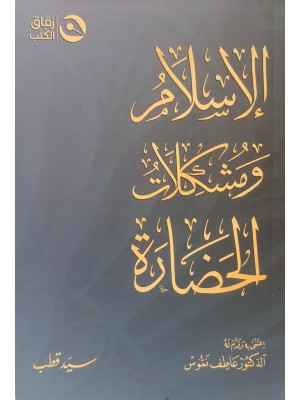 زقاق
الكتب
الإسلام
ومشكلات
الحضارة
اعتنى به وقدم له
الدكتور عاطف نموس
سيد قطب